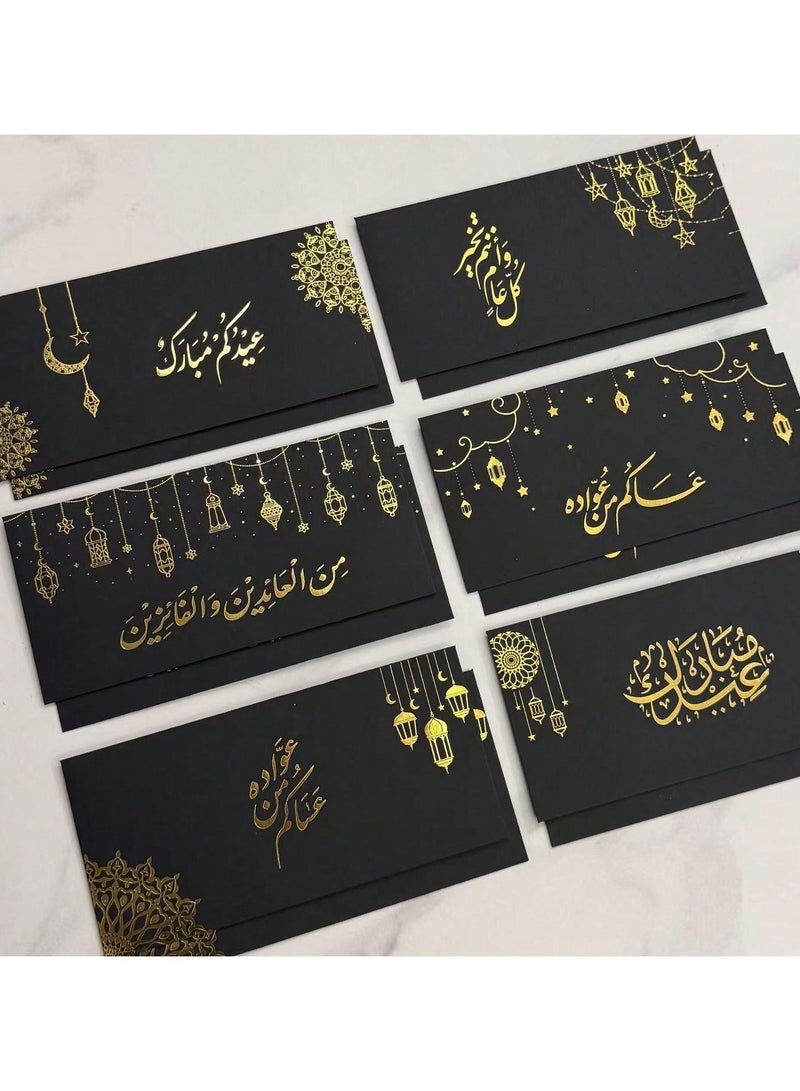 عِيدُكُمْ مُبَارَكْ
كُلّ عَامٍ
وَأَنتُم بِخَيْر
مِنَ الْعَائِدِيْنَ وَالْفَائِزِيْنَ
عَسَاكُم مِن عُوَّادِه
عَسَاكُم
مِن
عُوَّادِه
عِيْدُ
مُبَارَك